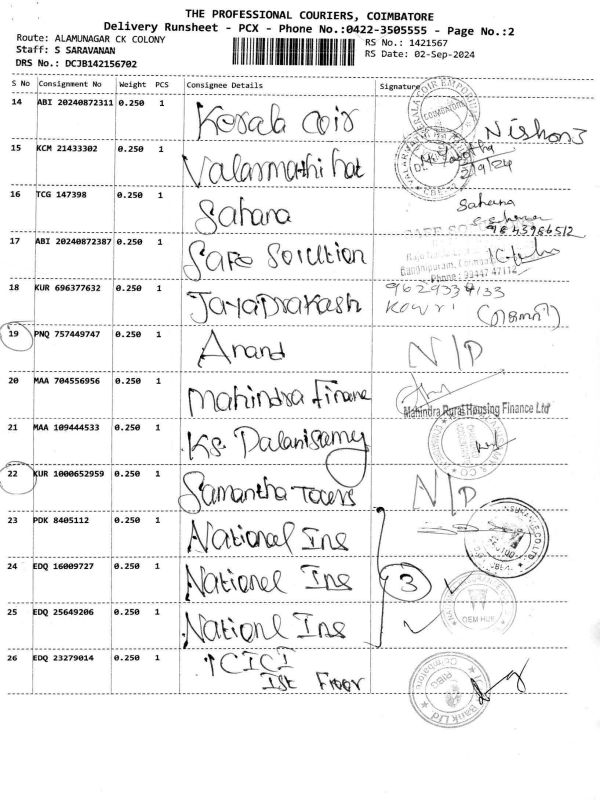 THE PROFESSIONAL COURIERS, COIMBATORE
Delivery Runsheet - PCX - Phone No.:0422-3505555 - Page No.:2
Route: ALAMUNAGAR CK COLONY
Staff: S SARAVANAN
DRS No.: DCJB142156702
RS No.: 1421567
RS Date: 02-Sep-2024
S No Consignment No Weight PCS Consignee Details Signature
14 ABI 20240872311 0.250 1 Kerala coir Nishon3
COIMBATORE
15 KCM 21433302 0.250 1 Valarmathi hat
2/9/24
16 TCG 147398 0.250 1 Sahana Sahana
9843966512
17 ABI 20240872387 0.250 1 Safe Solution
Phone : 99447 47114
18 KUR 696377632 0.250 1 JayaPrakash
Kowri
19 PNQ 757449747 0.250 1 Anand N/D
20 MAA 704556956 0.250 1 Mahindra Finane
Mahindra Rural Housing Finance Ltd
21 MAA 109444533 0.250 1 Ks. Palanisamy
22 KUR 1000652959 0.250 1 Samantha Towers N/D
23 PDK 8405112 0.250 1 National Ins
24 EDQ 16009727 0.250 1 National Ins 3
25 EDQ 25649206 0.250 1 Nationl Ins
26 EDQ 23279014 0.250 1 ICICI
Ist Floor
Bank Ltd